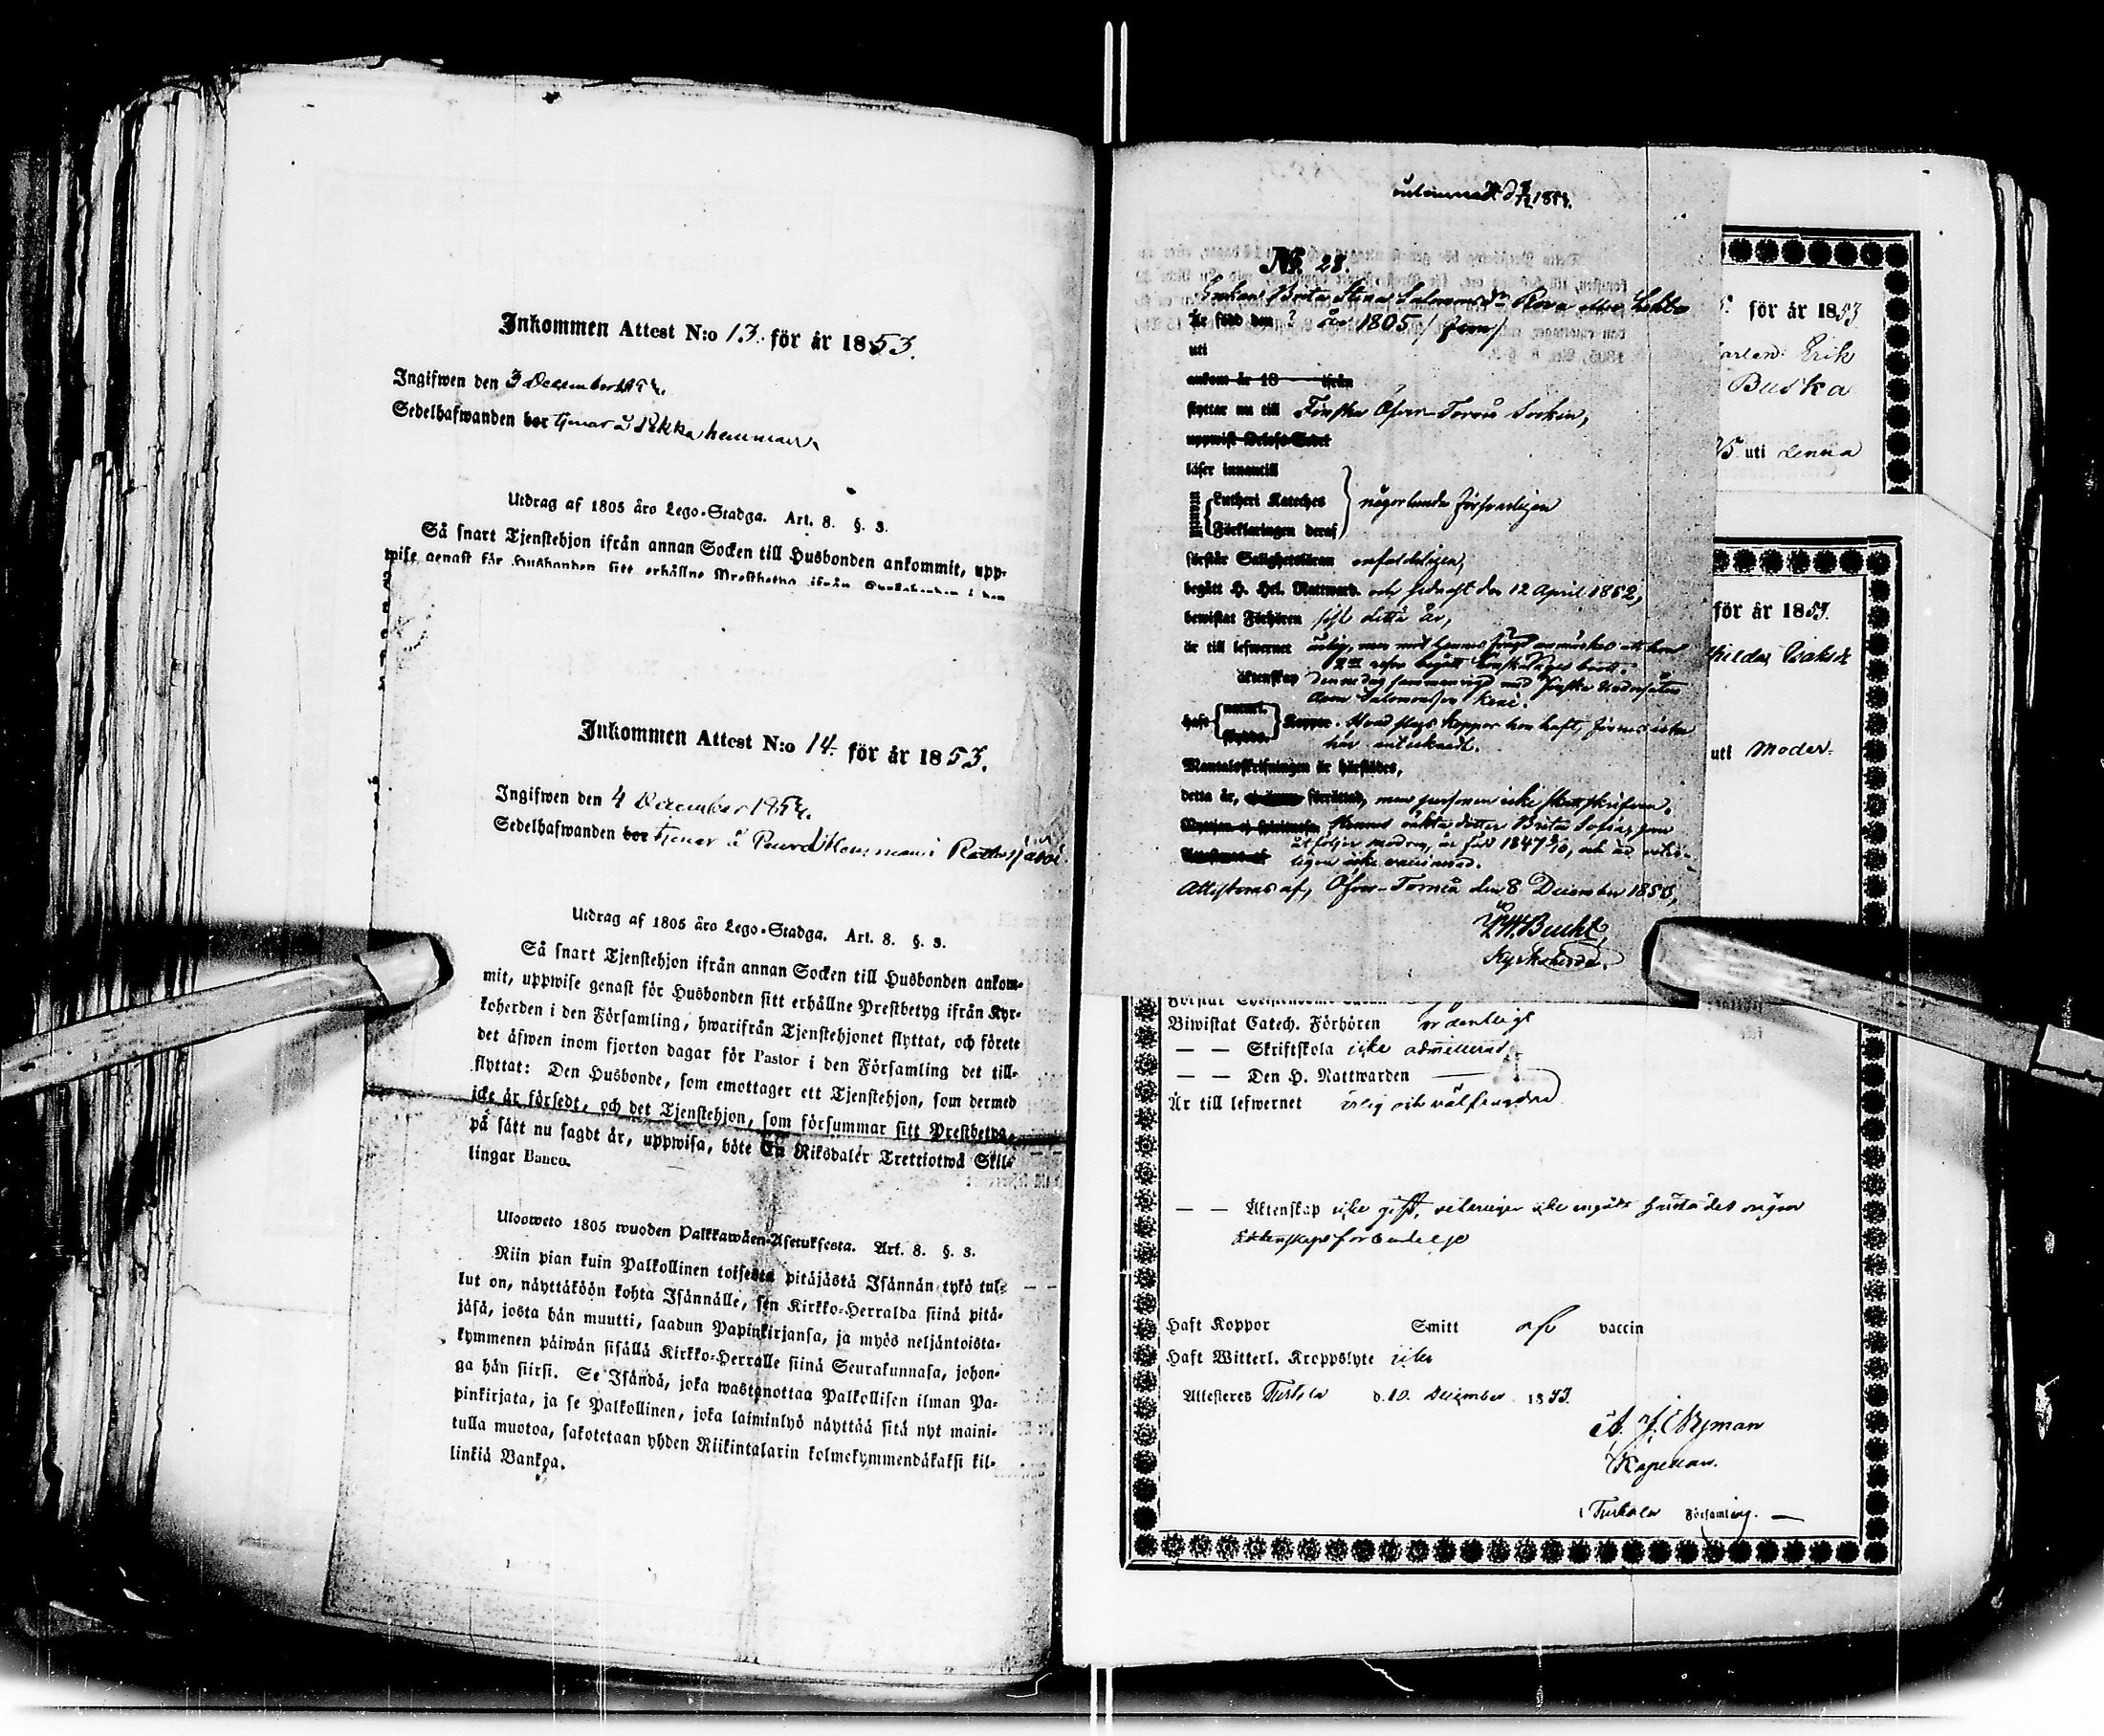 Inkommen Attest N:o 13. för år 1853.
Ingifwen den 3 December
Sedelhafwanden bor tjenar å Pekka hemman
Utdrag af 1805 åro Lego-Stadga. Art. 8. §. 3.
Så snart Tjenstehjon ifrån annan Socken till Husbonden ankommit, upp-
wise genast för Husbonden sitt erhållne Prestbetyg ifrån
Inkommen Attest N:o 14. för år 1853.
Ingifwen den 4 December
Sedelhafwanden bor tjenar å
Utdrag af 1805 åro Lego-Stadga. Art. 8. §. 3.
Så snart Tjenstehjon ifrån annan Socken till Husbonden ankom-
mit, uppwise genast för Husbonden sitt erhållne Prestbetyg ifrån Kyr-
koherden i den Församling, hwarifrån Tjenstehjonet flyttat, och förete
det äfwen inom fjorton dagar för Pastor i den Församling det till-
flyttat: Den Husbonde, som emottager ett Tjenstehjon, som dermed
icke är försedt, och det Tjenstehjon, som försummar sitt Prestbetyg,
på sätt nu sagdt är, uppwisa, böte En Riksdaler Trettiotwå Skil-
lingar Banco.
Ulosweto 1805 wuoden Palkkawäen-Asetuksesta. Art. 8. §. 3.
Niin pian kuin Palkollinen toisesta pitäjästä Isännän tykö tul-
lut on, näyttäköön kohta Isännälle, sen Kirkko-Herralda siinä pitä-
jäsä, josta hän muutti, saadun Papinkirjansa, ja myös neljäntoista-
kymmenen päiwän sisällä Kirkko-Herralle siinä Seurakunnasa, johon-
ga hän siirsi. Se Isändä, joka wastanottaa Palkollisen ilman Pa-
pinkirjata, ja se Palkollinen, joka laiminlyö näyttää sitä nyt maini-
tulla muotoa, sakotetaan yhden Riikintalarin kolmekymmendäkaksi kil-
linkiä Bankoa.
No. 28.
Enkan Brita Stina Salomonsdr Rova
Är född den ? år 1805
uti
ankom år 18 ifrån
flyttar nu till Finska Öfver-Torneå Socken,
uppwist Orlofs-Sedel
läser innantill
Lutheri Kateches
Förklaringen deraf någorlunda försvarligen
förstår Salighetsläran enfaldeligen,
begått H. Hel. Nattward. och sednast den 12 April 1852,
bewistat Förhören sist detta år,
är till lefwernet ärlig, men med hennes
2:ne begått
äktenskap denne dag sammanvigd med Finska Undersåten
haft naturl. skydds. Koppor. Hvad slags koppor hon haft, finnes icke
här antecknadt.
Mantalsskrifningen är härstädes,
detta år, förrättad, men personen icke skattskrifven.
Hennes oäkta dotter Brita Sofia, som
åtföljer modren, är född 1847
icke vaccinerad.
Attesteras af, Öfver-Torneå den 8 December 1853,
Kyrkoherde.
för år 1853
Erik
Buska
uti denna
för år 1853.
uti Moder-
Biwistat Catech. Förhören ordentligt
— — Skriftskola icke admitterad
— — Den H. Nattwarden —
Är till lefwernet ärlig och välfrejdad
— — Äktenskap icke gift, veterligen icke ingått härstädes någon
Ektenskaps förbindelse
Haft Koppor Smitt af vaccin
Haft Witterl. Kroppslyte icke
Attesteres Turtola d. 10. December 1853.
Kapellan.
Turtola Församling. —